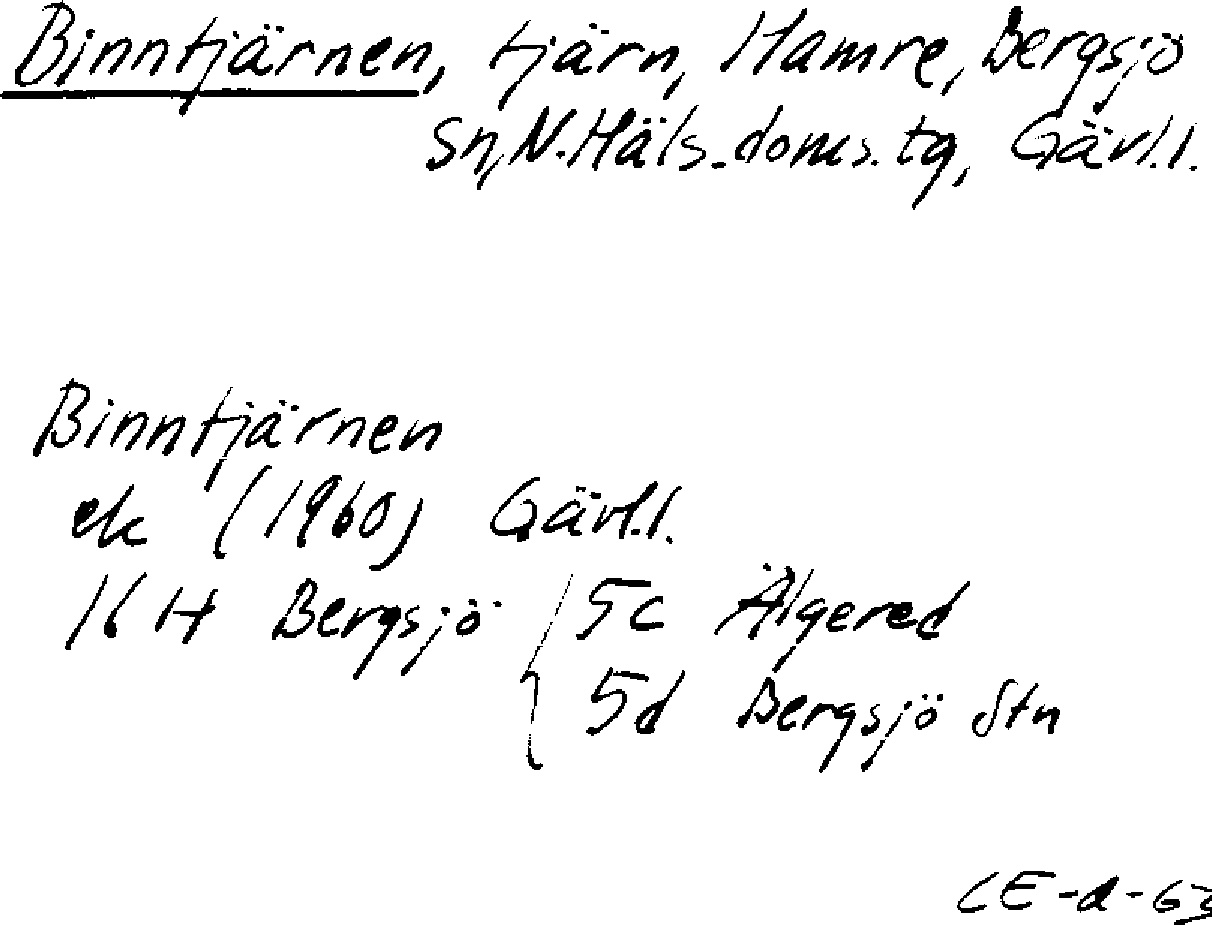 Binntjärnen, tjärn, Hamre, Bergsjö
sn, N. Häls. doms. tg, Gävl.l.
Binntjärnen
ek (1960) Gävl.l.
16 H Bergsjö { 5c Älgered
5d Bergsjö Stn
CE-d-63